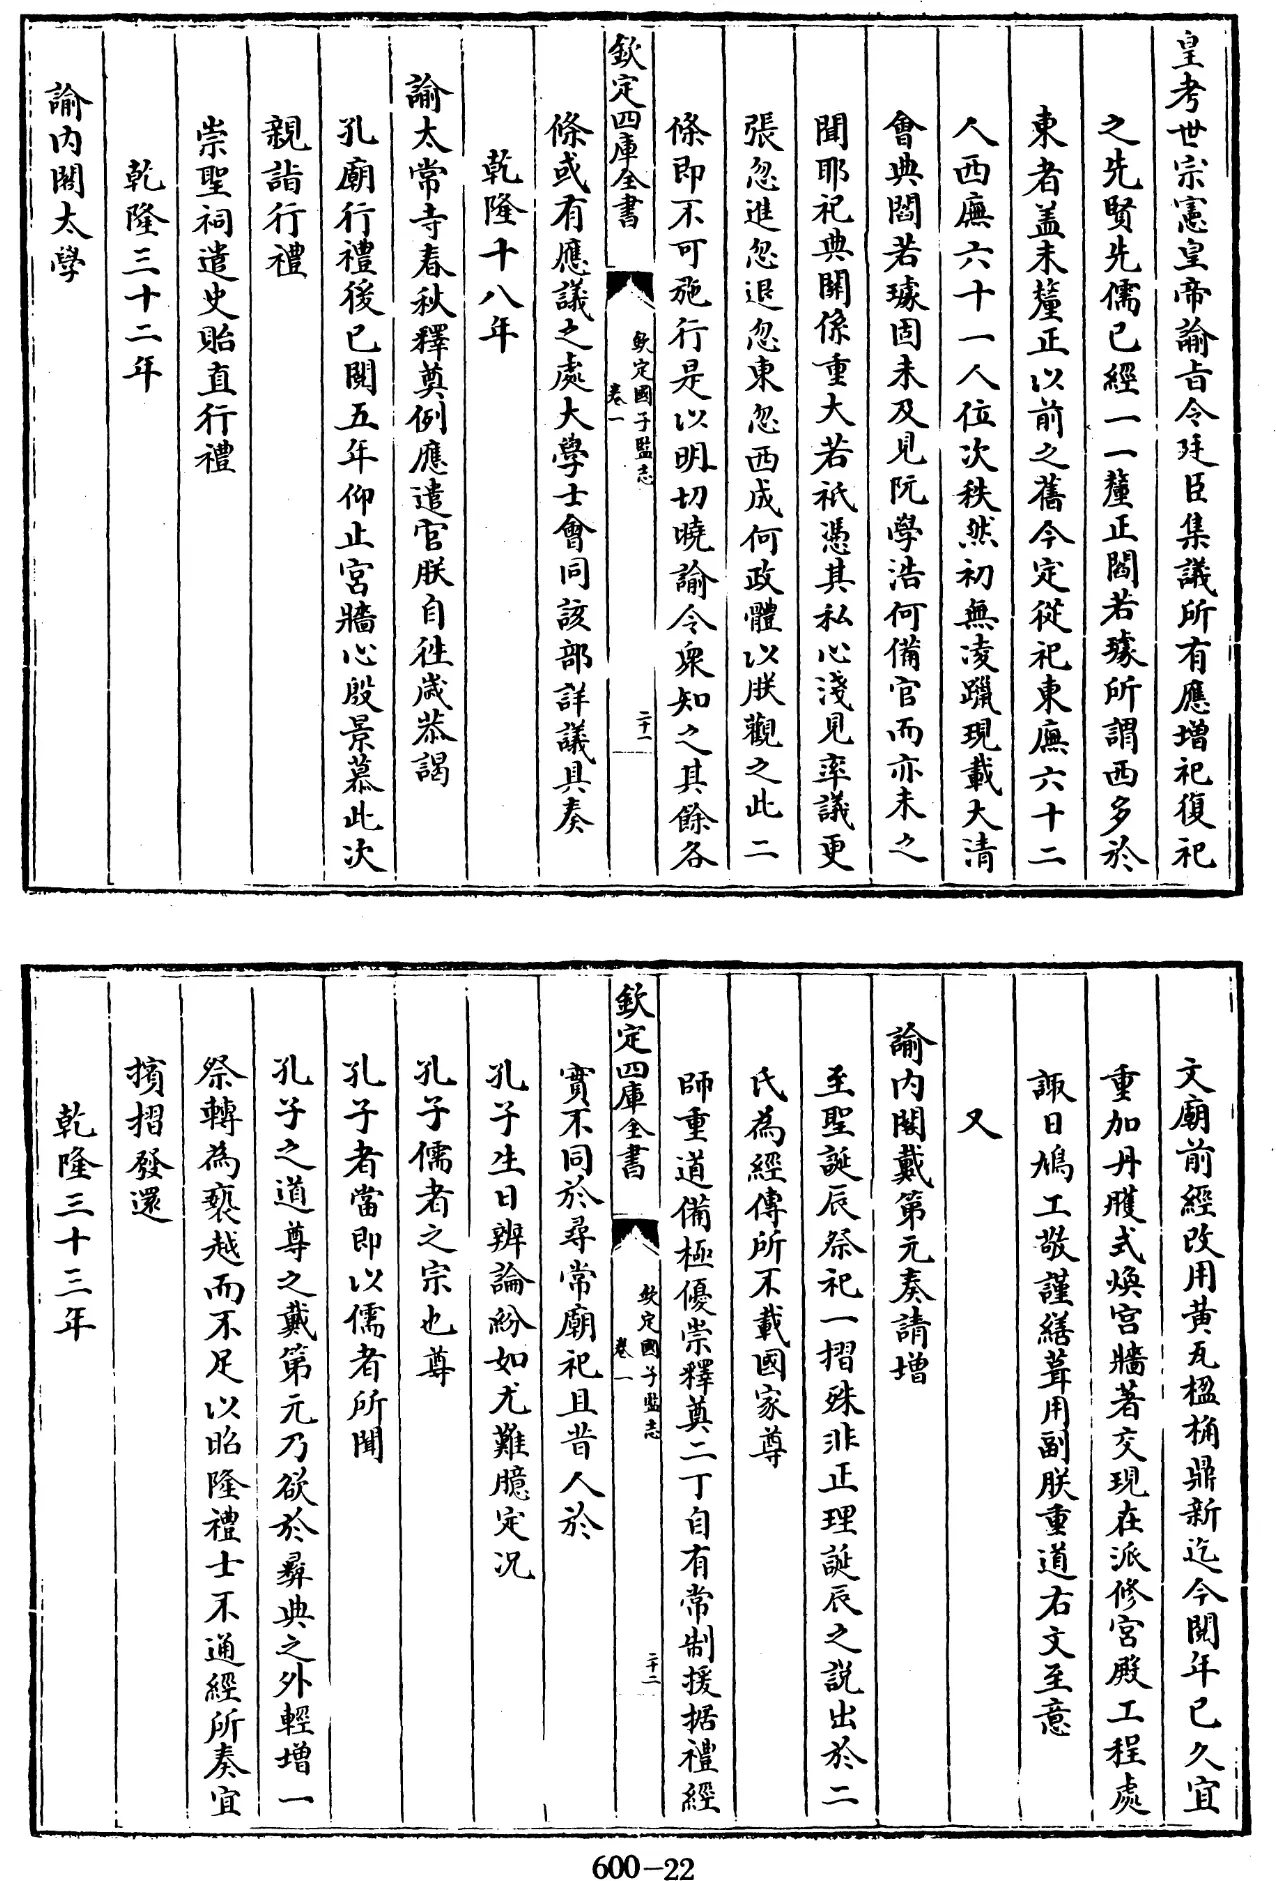 皇考世宗憲皇帝諭旨令廷臣集議所有應增祀復祀
之先賢先儒已經一一釐正閻若璩所謂西多於
東者盖未釐正以前之舊今定從祀東廡六十二
人西廡六十一人位次秩然初無凌躐現載大清
會典閻若璩固未及見阮學浩何備官而亦未之
聞耶祀典關係重大若祇憑其私心淺見率議更
張忽進忽退忽東忽西成何政體以朕觀之此二
條即不可施行是以明切曉諭令衆知之其餘各
欽定四庫全書
欽定國子監志
卷一
二十一
條或有應議之處大學士會同該部詳議具奏
乾隆十八年
諭太常寺春秋釋奠例應遣官朕自徃歲恭謁
孔廟行禮後已閱五年仰止宫牆心殷景慕此次
親詣行禮
崇聖祠遣史貽直行禮
乾隆三十二年
諭内閣太學
文廟前經改用黄瓦楹桷鼎新迄今閱年已久宜
重加丹雘式煥宫牆著交現在派修宫殿工程處
諏日鳩工敬謹繕葺用副朕重道右文至意
又
諭内閣戴第元奏請增
至聖誕辰祭祀一摺殊非正理誕辰之説出於二
氏為經傳所不載國家尊
師重道備極優崇釋奠二丁自有常制援据禮經
欽定四庫全書
欽定國子監志
卷一
二十二
實不同於尋常廟祀且昔人於
孔子生日辨論紛如尤難臆定况
孔子儒者之宗也尊
孔子者當即以儒者所聞
孔子之道尊之戴第元乃欲於彞典之外輕增一
祭轉為褻越而不足以昭隆禮士不通經所奏宜
擯摺發還
乾隆三十三年
600-22